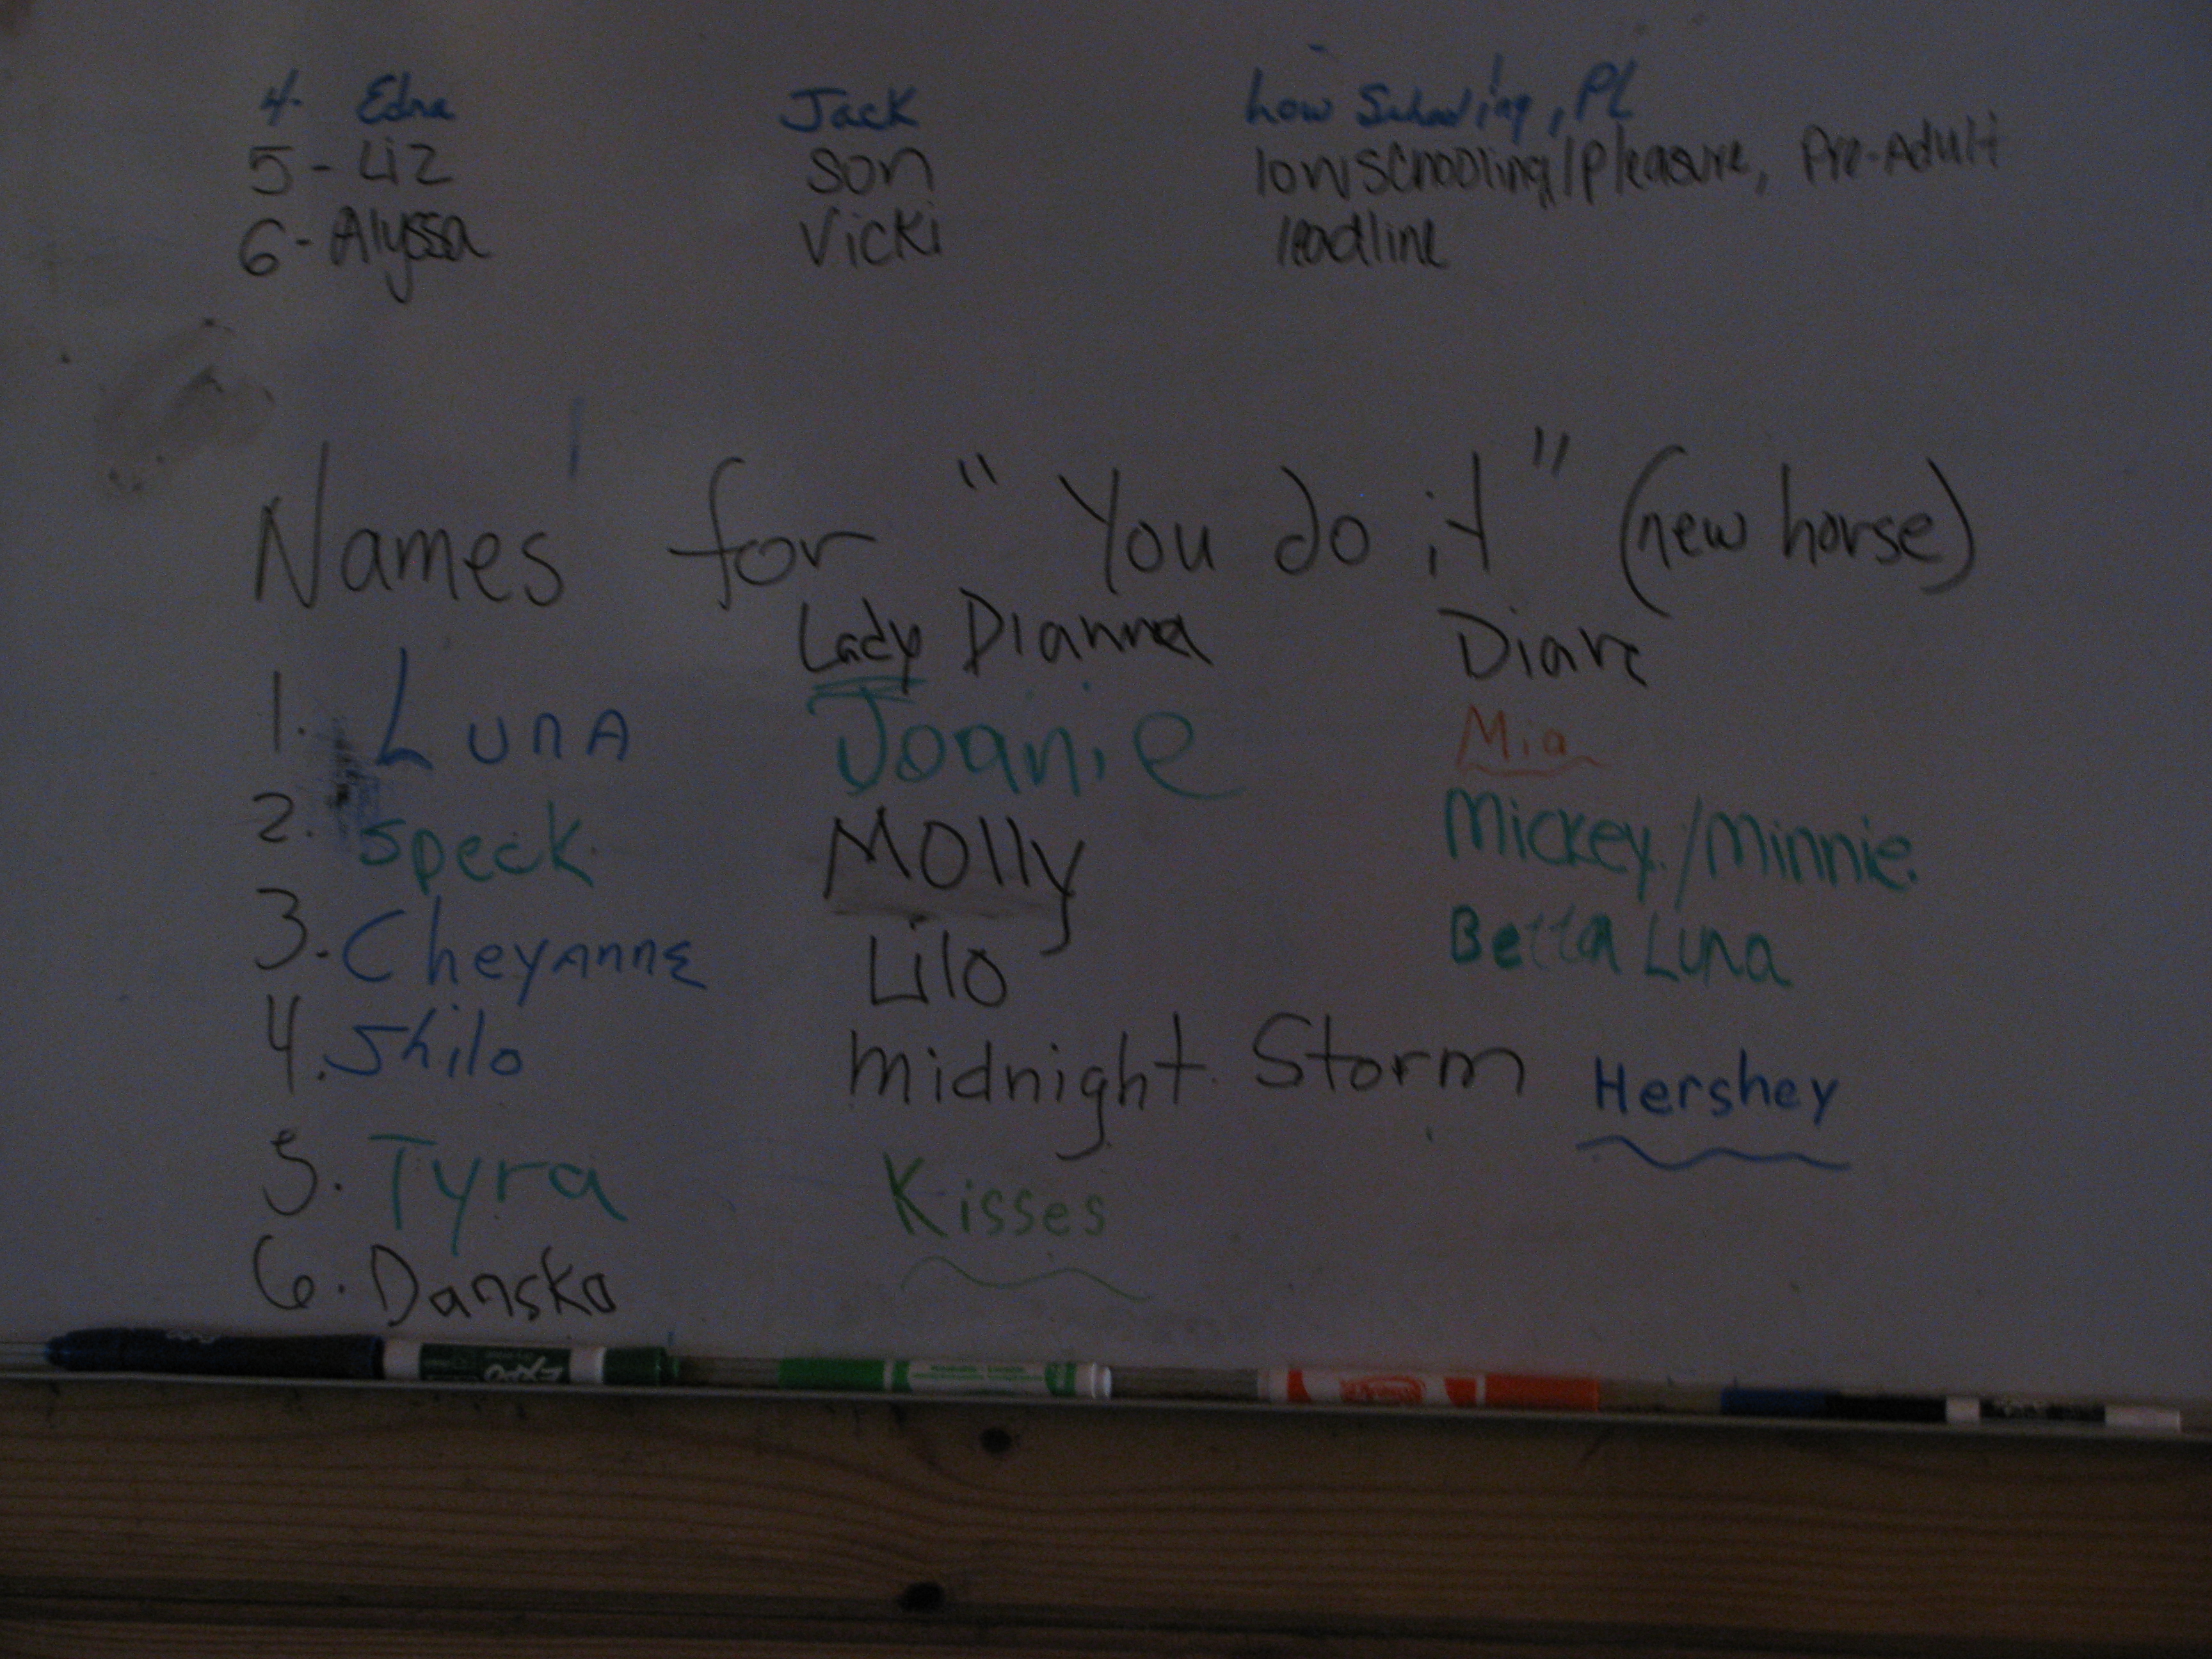 4. Edna Jack Low Schooling, PL
5 - Liz Son low schooling/pleasure, Pre-Adult
6 - Alyssa Vicki leadline
Names for "You do it" (new horse)
Lady Dianna Diane
1. Luna Joanie Mia
2. Speck Molly Mickey/Minnie
3. Cheyanne Lilo Betta Luna
4. Shilo midnight Storm Hershey
5. Tyra Kisses
6. Dansko
EXPO